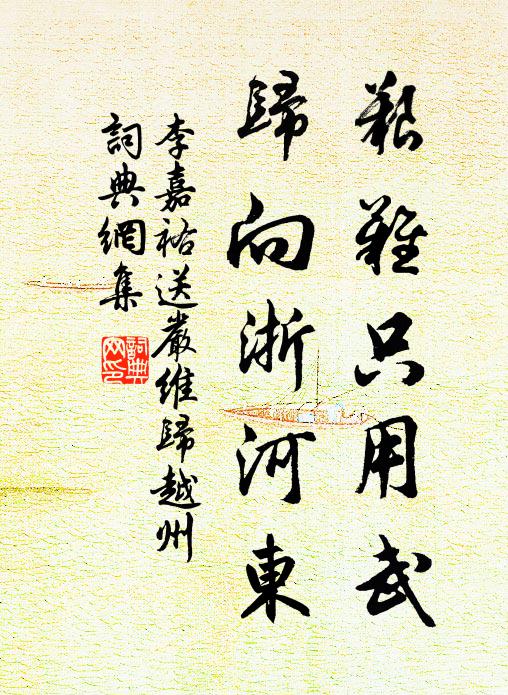 艱難只用武
歸向浙河東
李嘉祐送嚴維歸越州
詞典網集
詞典網印